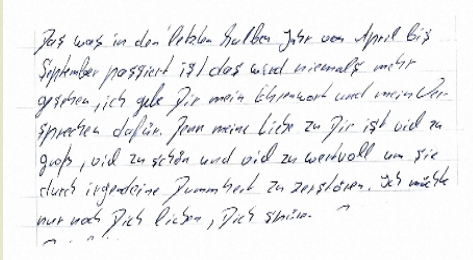 Das was in den letzten halben Jahr von April bis
September passiert ist das wird niemals mehr
geschehen, ich gebe Dir mein Ehrenwort und mein Ver-
sprechen dafür. Denn meine Liebe zu Dir ist viel zu
groß, viel zu schön und viel zu wertvoll um sie
durch irgendeine Dummheit zu zerstören. Ich möchte
nur noch Dich lieben, Dich spüren.